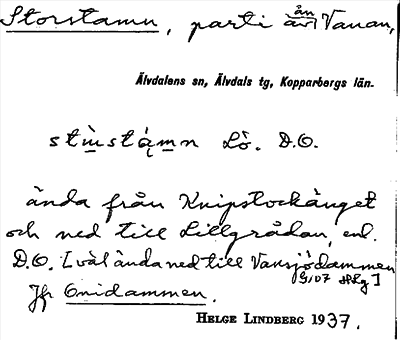 Storstamn, parti av ån Vanan,
Älvdalens sn, Älvdals tg, Kopparbergs län.
stùstą́mn Lö. D.O.
ända från Knipstockänget
och ned till Lillgrådan, enl.
D.O. [väl ända ned till Vansjödammen
G107 HLg]
Jfr Gnidammen.
HELGE LINDBERG 1937.